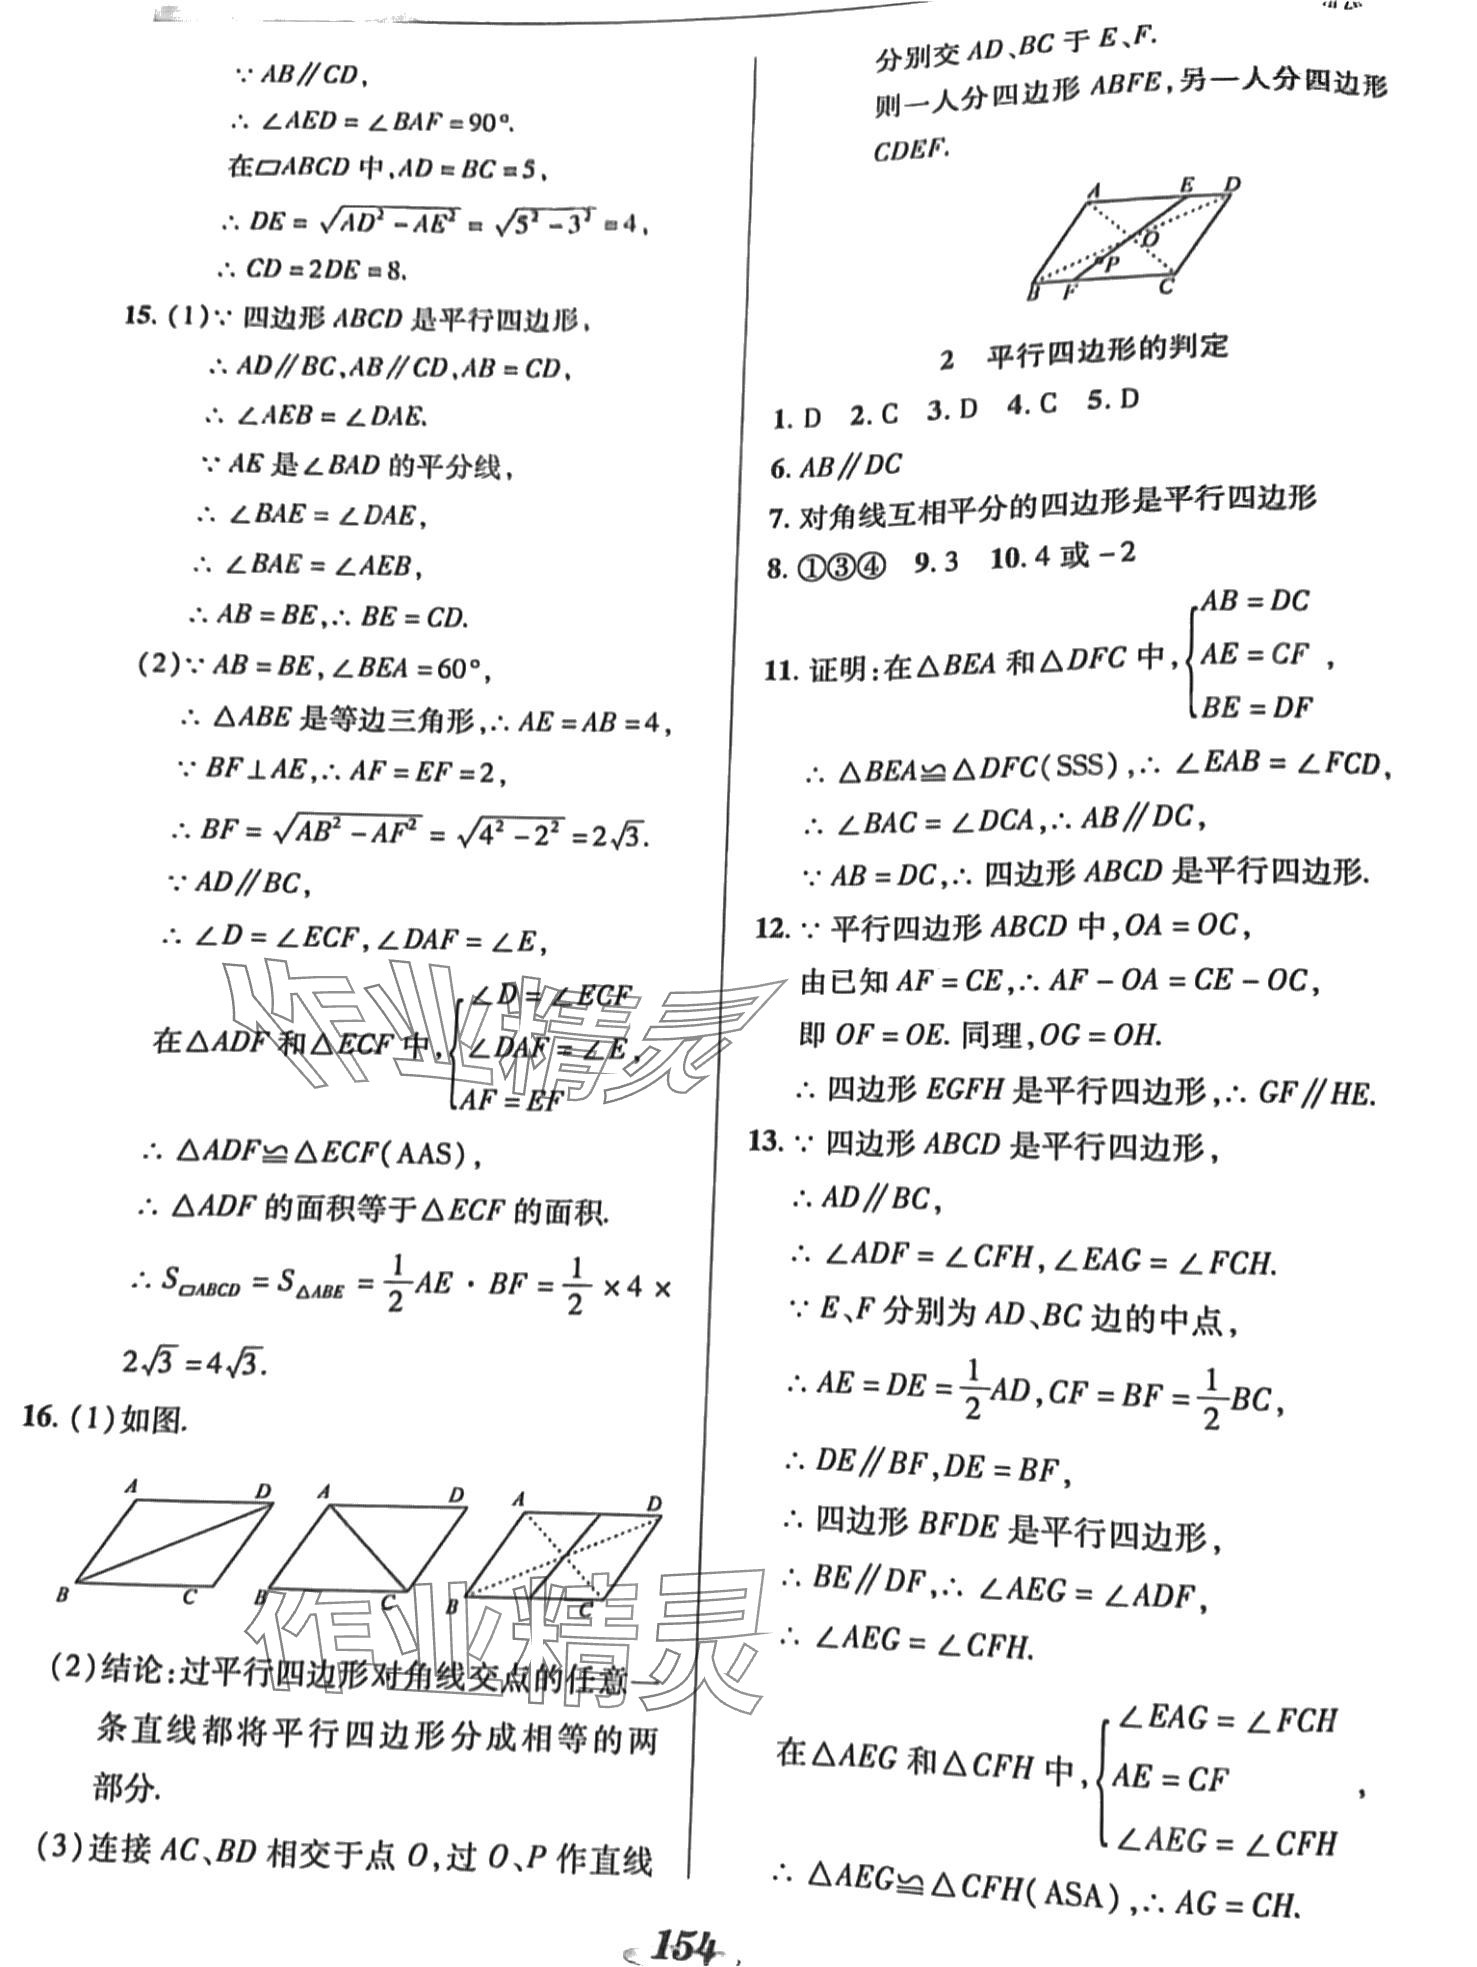 ∵ AB∥CD,
∴ ∠AED=∠BAF=90°.
在▱ABCD 中,AD=BC=5,
∴ DE=√(AD²-AE²)=√(5²-3²)=4,
∴ CD=2DE=8.
15. (1)∵ 四边形 ABCD 是平行四边形,
∴ AD∥BC,AB∥CD,AB=CD,
∴ ∠AEB=∠DAE.
∵ AE 是∠BAD 的平分线,
∴ ∠BAE=∠DAE,
∴ ∠BAE=∠AEB,
∴ AB=BE,∴ BE=CD.
(2)∵ AB=BE,∠BEA=60°,
∴ △ABE 是等边三角形,∴ AE=AB=4,
∵ BF⊥AE,∴ AF=EF=2,
∴ BF=√(AB²-AF²)=√(4²-2²)=2√3.
∵ AD∥BC,
∴ ∠D=∠ECF,∠DAF=∠E,
在△ADF 和△ECF 中,{∠D=∠ECF
∠DAF=∠E,
AF=EF
∴ △ADF≌△ECF(AAS),
∴ △ADF 的面积等于△ECF 的面积.
∴ S▱ABCD=S△ABE=1/2 AE·BF=1/2×4×
2√3=4√3.
16. (1)如图.
A D A D A D
B C B C B C
(2)结论:过平行四边形对角线交点的任意一
条直线都将平行四边形分成相等的两
部分.
(3)连接 AC、BD 相交于点 O,过 O、P 作直线
分别交 AD、BC 于 E、F.
则一人分四边形 ABFE,另一人分四边形
CDEF.
A E D
O
P
B F C
2 平行四边形的判定
1. D 2. C 3. D 4. C 5. D
6. AB∥DC
7. 对角线互相平分的四边形是平行四边形
8. ①③④ 9. 3 10. 4 或 -2
11. 证明:在△BEA 和△DFC 中,{AB=DC
AE=CF,
BE=DF
∴ △BEA≌△DFC(SSS),∴ ∠EAB=∠FCD,
∴ ∠BAC=∠DCA,∴ AB∥DC,
∵ AB=DC,∴ 四边形 ABCD 是平行四边形.
12. ∵ 平行四边形 ABCD 中,OA=OC,
由已知 AF=CE,∴ AF-OA=CE-OC,
即 OF=OE. 同理,OG=OH.
∴ 四边形 EGFH 是平行四边形,∴ GF∥HE.
13. ∵ 四边形 ABCD 是平行四边形,
∴ AD∥BC,
∴ ∠ADF=∠CFH,∠EAG=∠FCH.
∵ E、F 分别为 AD、BC 边的中点,
∴ AE=DE=1/2 AD,CF=BF=1/2 BC,
∴ DE∥BF,DE=BF,
∴ 四边形 BFDE 是平行四边形,
∴ BE∥DF,∴ ∠AEG=∠ADF,
∴ ∠AEG=∠CFH.
在△AEG 和△CFH 中,{∠EAG=∠FCH
AE=CF,
∠AEG=∠CFH
∴ △AEG≌△CFH(ASA),∴ AG=CH.
154
作业精灵
作业精灵